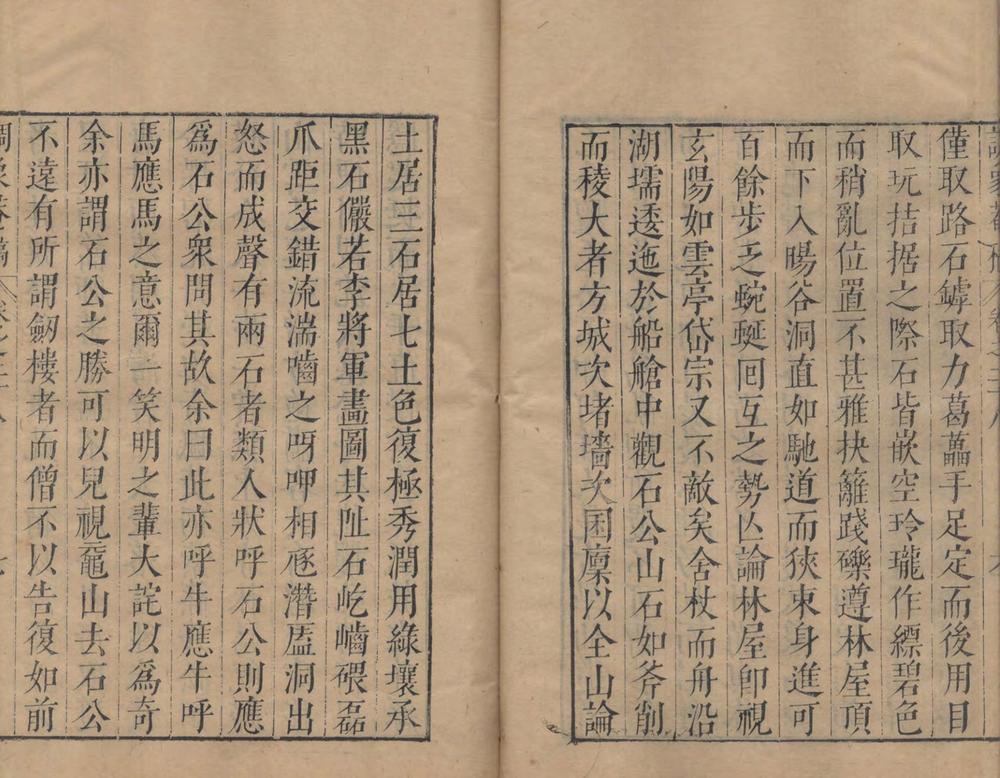 僅取路石罅取力葛藟手足定而後用目
取玩拮据之際石皆嵌空玲瓏作縹碧色
而稍亂位置不甚雅抉籬踐礫遵林屋頂
而下入暘谷洞直如馳道而狹束身進可
百餘步乏蜿蜒回互之勢亾論林屋卽視
玄陽如雲亭岱宗又不敵矣舍杖而舟沿
湖壖逶迤於船艙中觀石公山石如斧削
而稜大者方城次堵墻次囷廩以全山論
土居三石居七土色復極秀潤用綠壤承
黑石儼若李將軍畫圖其阯石屹崷碨磊
爪距交錯流湍嚙之呀呷相豗潛廅洞出
怒而成聲有兩石者類人狀呼石公則應
爲石公衆問其故余曰此亦呼牛應牛呼
馬應馬之意爾一笑明之輩大詫以爲奇
余亦謂石公之勝可以兒視黿山去石公
不遠有所謂劒樓者而僧不以告復如前